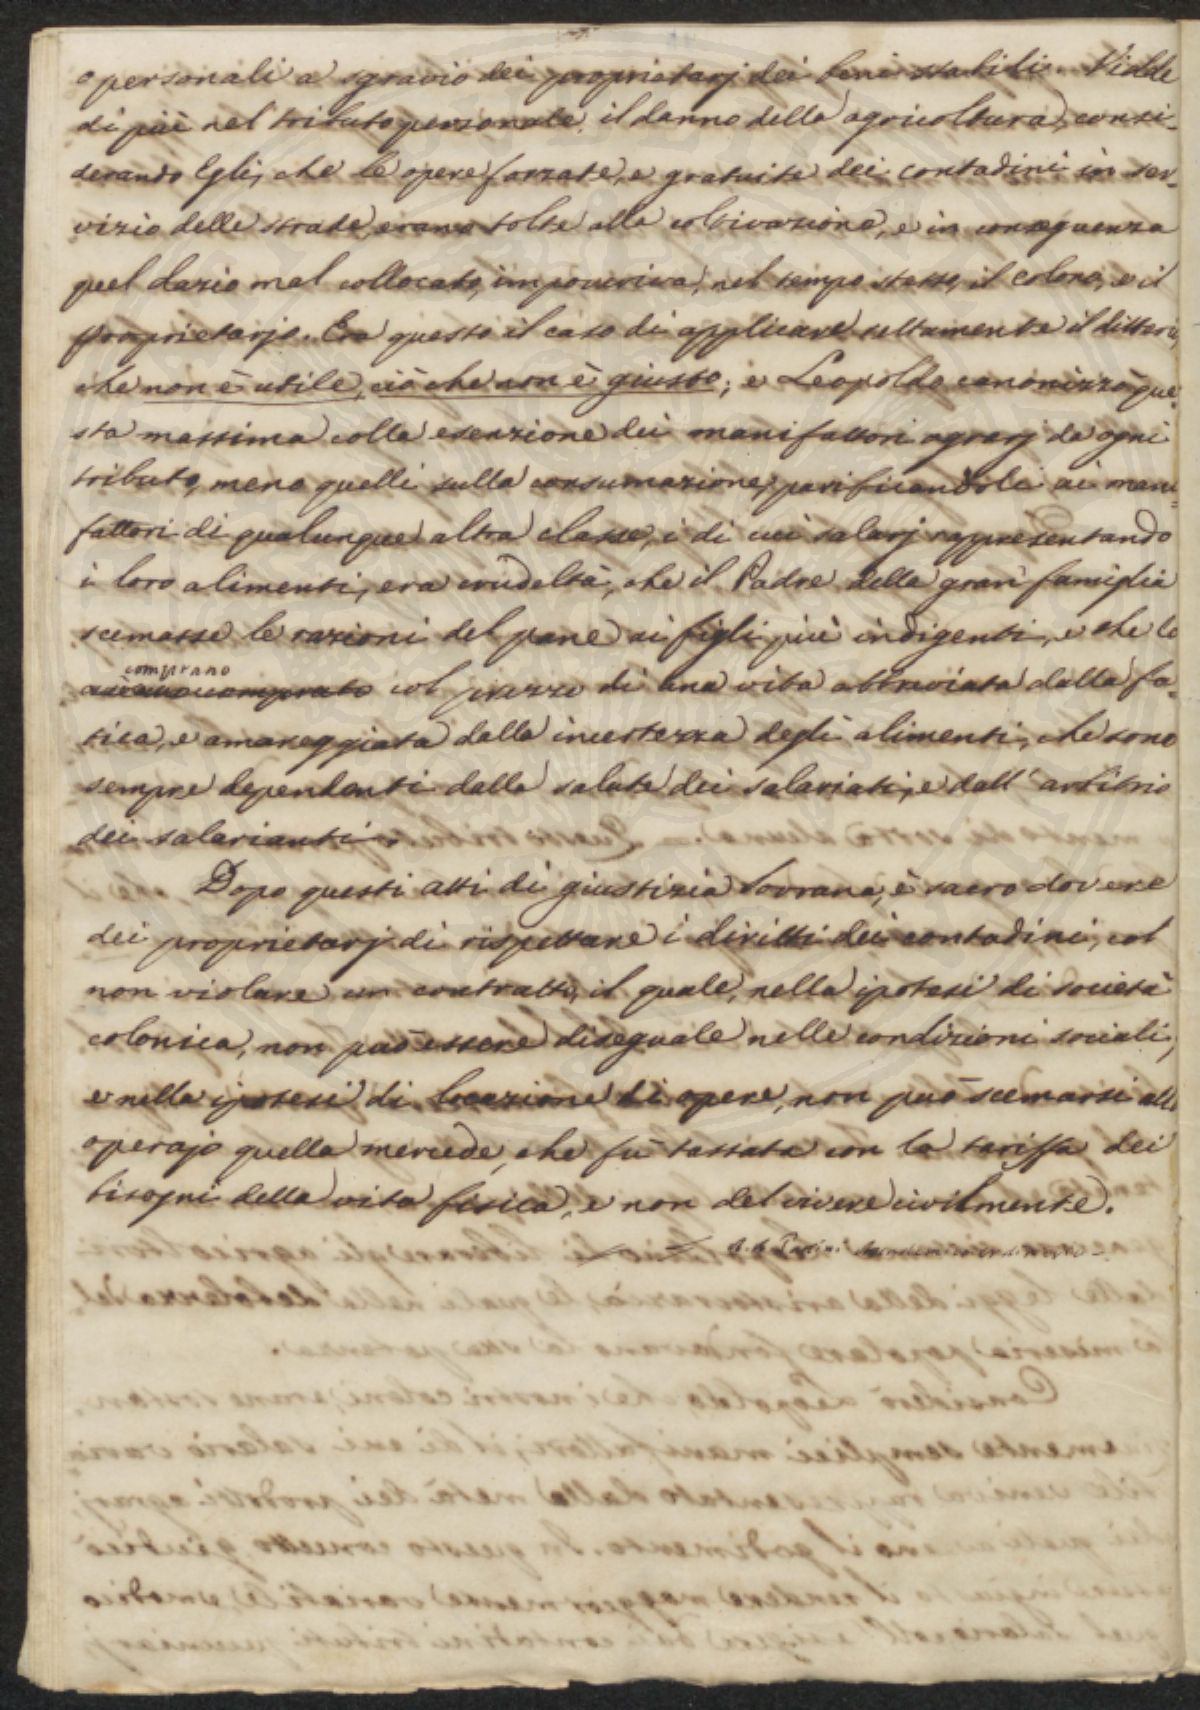 o personali a sgravio dei proprietarj dei beni stabili. Vidde
di più nel tributo personale, il danno della agricoltura, consi-
derando Egli, che le opere forzate, e gratuite dei contadini in ser-
vizio delle strade, erano tolte alla coltivazione, e in conseguenza
quel dazio mal collocato, impoveriva, nel tempo stesso, il colono, e il
proprietarjo. Era questo il caso di applicare rettamente il
che non è utile, ciò che non è giusto; e Leopoldo canonizzò que-
sta massima colla esenzione dei manifattori agrarj da ogni
tributo, meno quelli sulla consumazione, parificandoli ai mani-
fattori di qualunque altra classe, i di cui salarj rappresentando
i loro alimenti, era crudeltà, che il Padre della gran famiglia
scemasse le razioni del pane ai figli più indigenti, e che lo
comprano
col prezzo di una vita abbreviata dalla fa-
tica, e amareggiata dalla incertezza degli alimenti, che sono
sempre dependenti dalla salute dei salariati, e dall' arbitrio
dei salarianti.
Dopo questi atti di giustizia Sovrana, è sacro dovere
dei proprietarj di rispettare i diritti dei contadini, col
non violare un contratto, il quale, nella ipotesi di società
colonica, non può essere diseguale nelle condizioni sociali,
e nella ipotesi di locazione di opere, non può scemarsi allo
operajo quella mercede, che fù tassata con la tariffa dei
bisogni della vita fisica, e non del vivere civilmente.